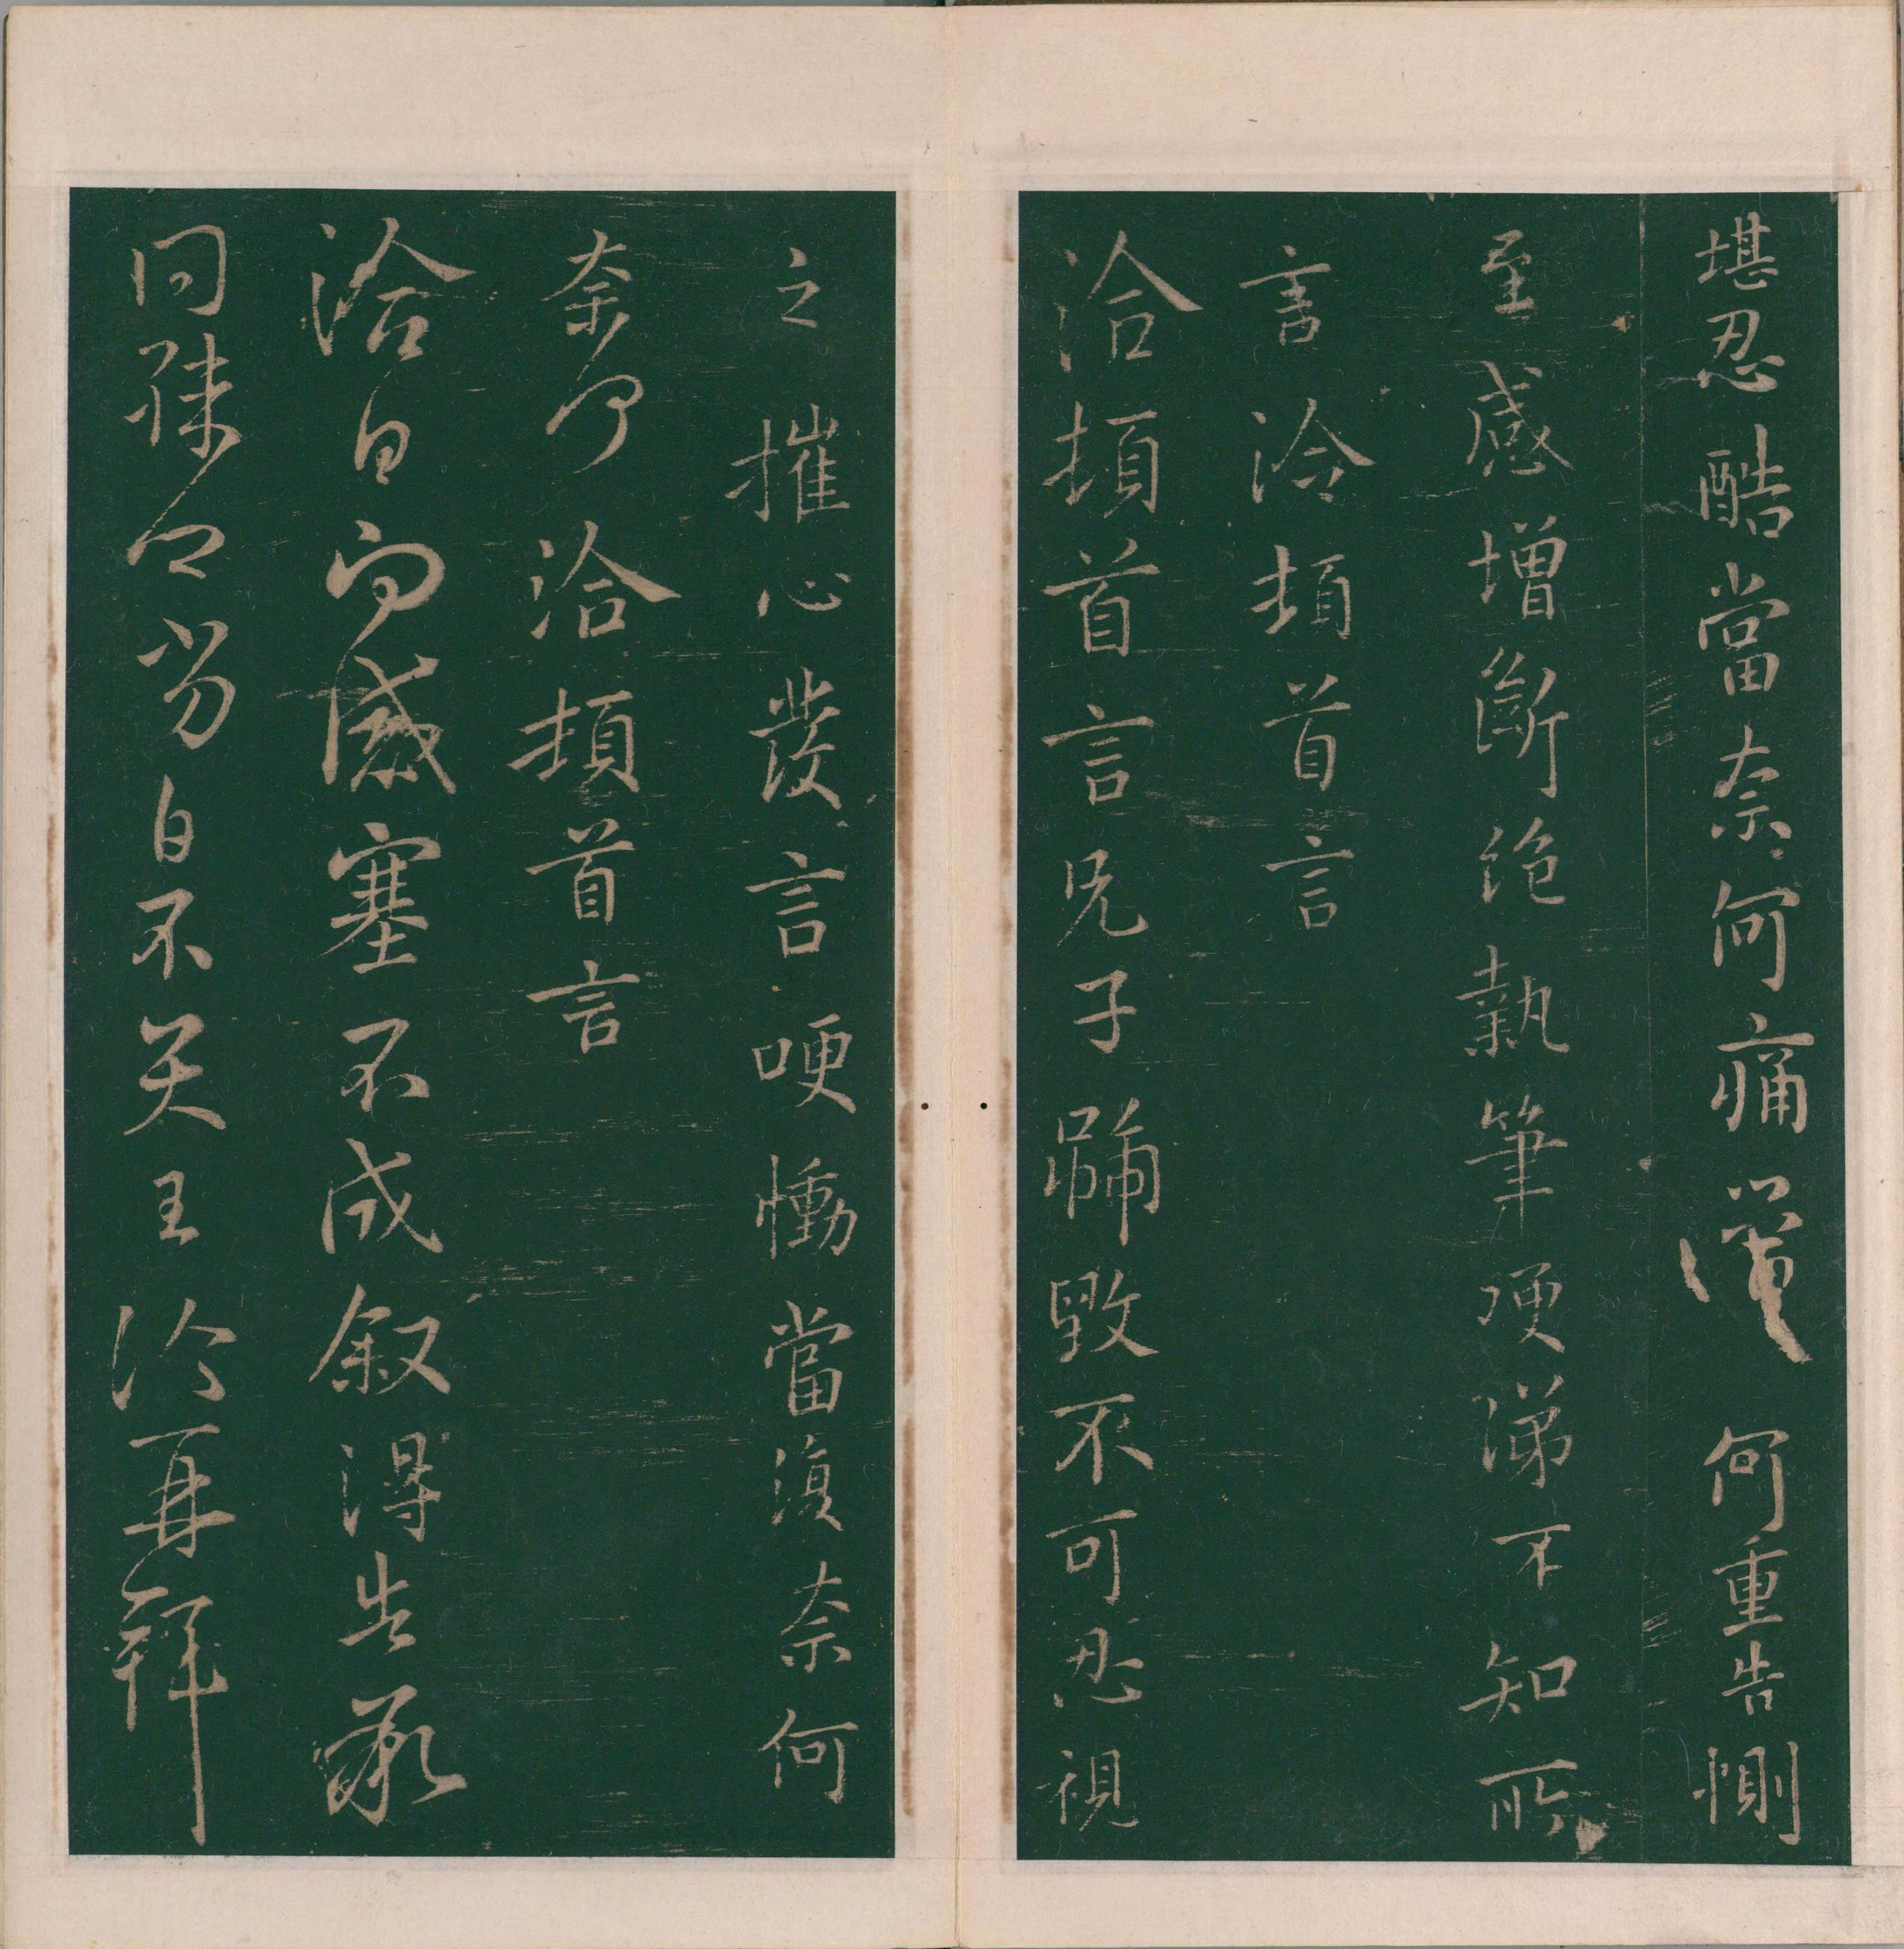 堪忍酷當奈何痛 何重告惻
至感增斷絕執筆哽涕不知所
言洽頓首言
洽頓首言兄子號毀不可忍視
之摧心發言哽慟當復奈何
奈何洽頓首言
洽白向感塞不成叙得告承
問殊乏劣白不具王洽再拜